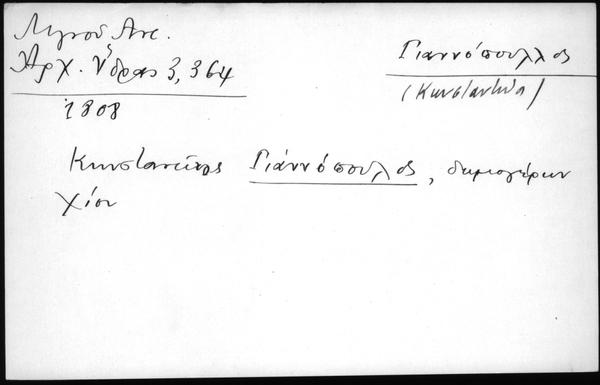 Λιγνού Αντ.
Ἀρχ. Ὕδρας 3, 364
1808
Γιαννόπουλλος
(Κωνσταντῖνος)
Κωνσταντῖνος Γιάννόπουλος, δημογέρων
Χίου